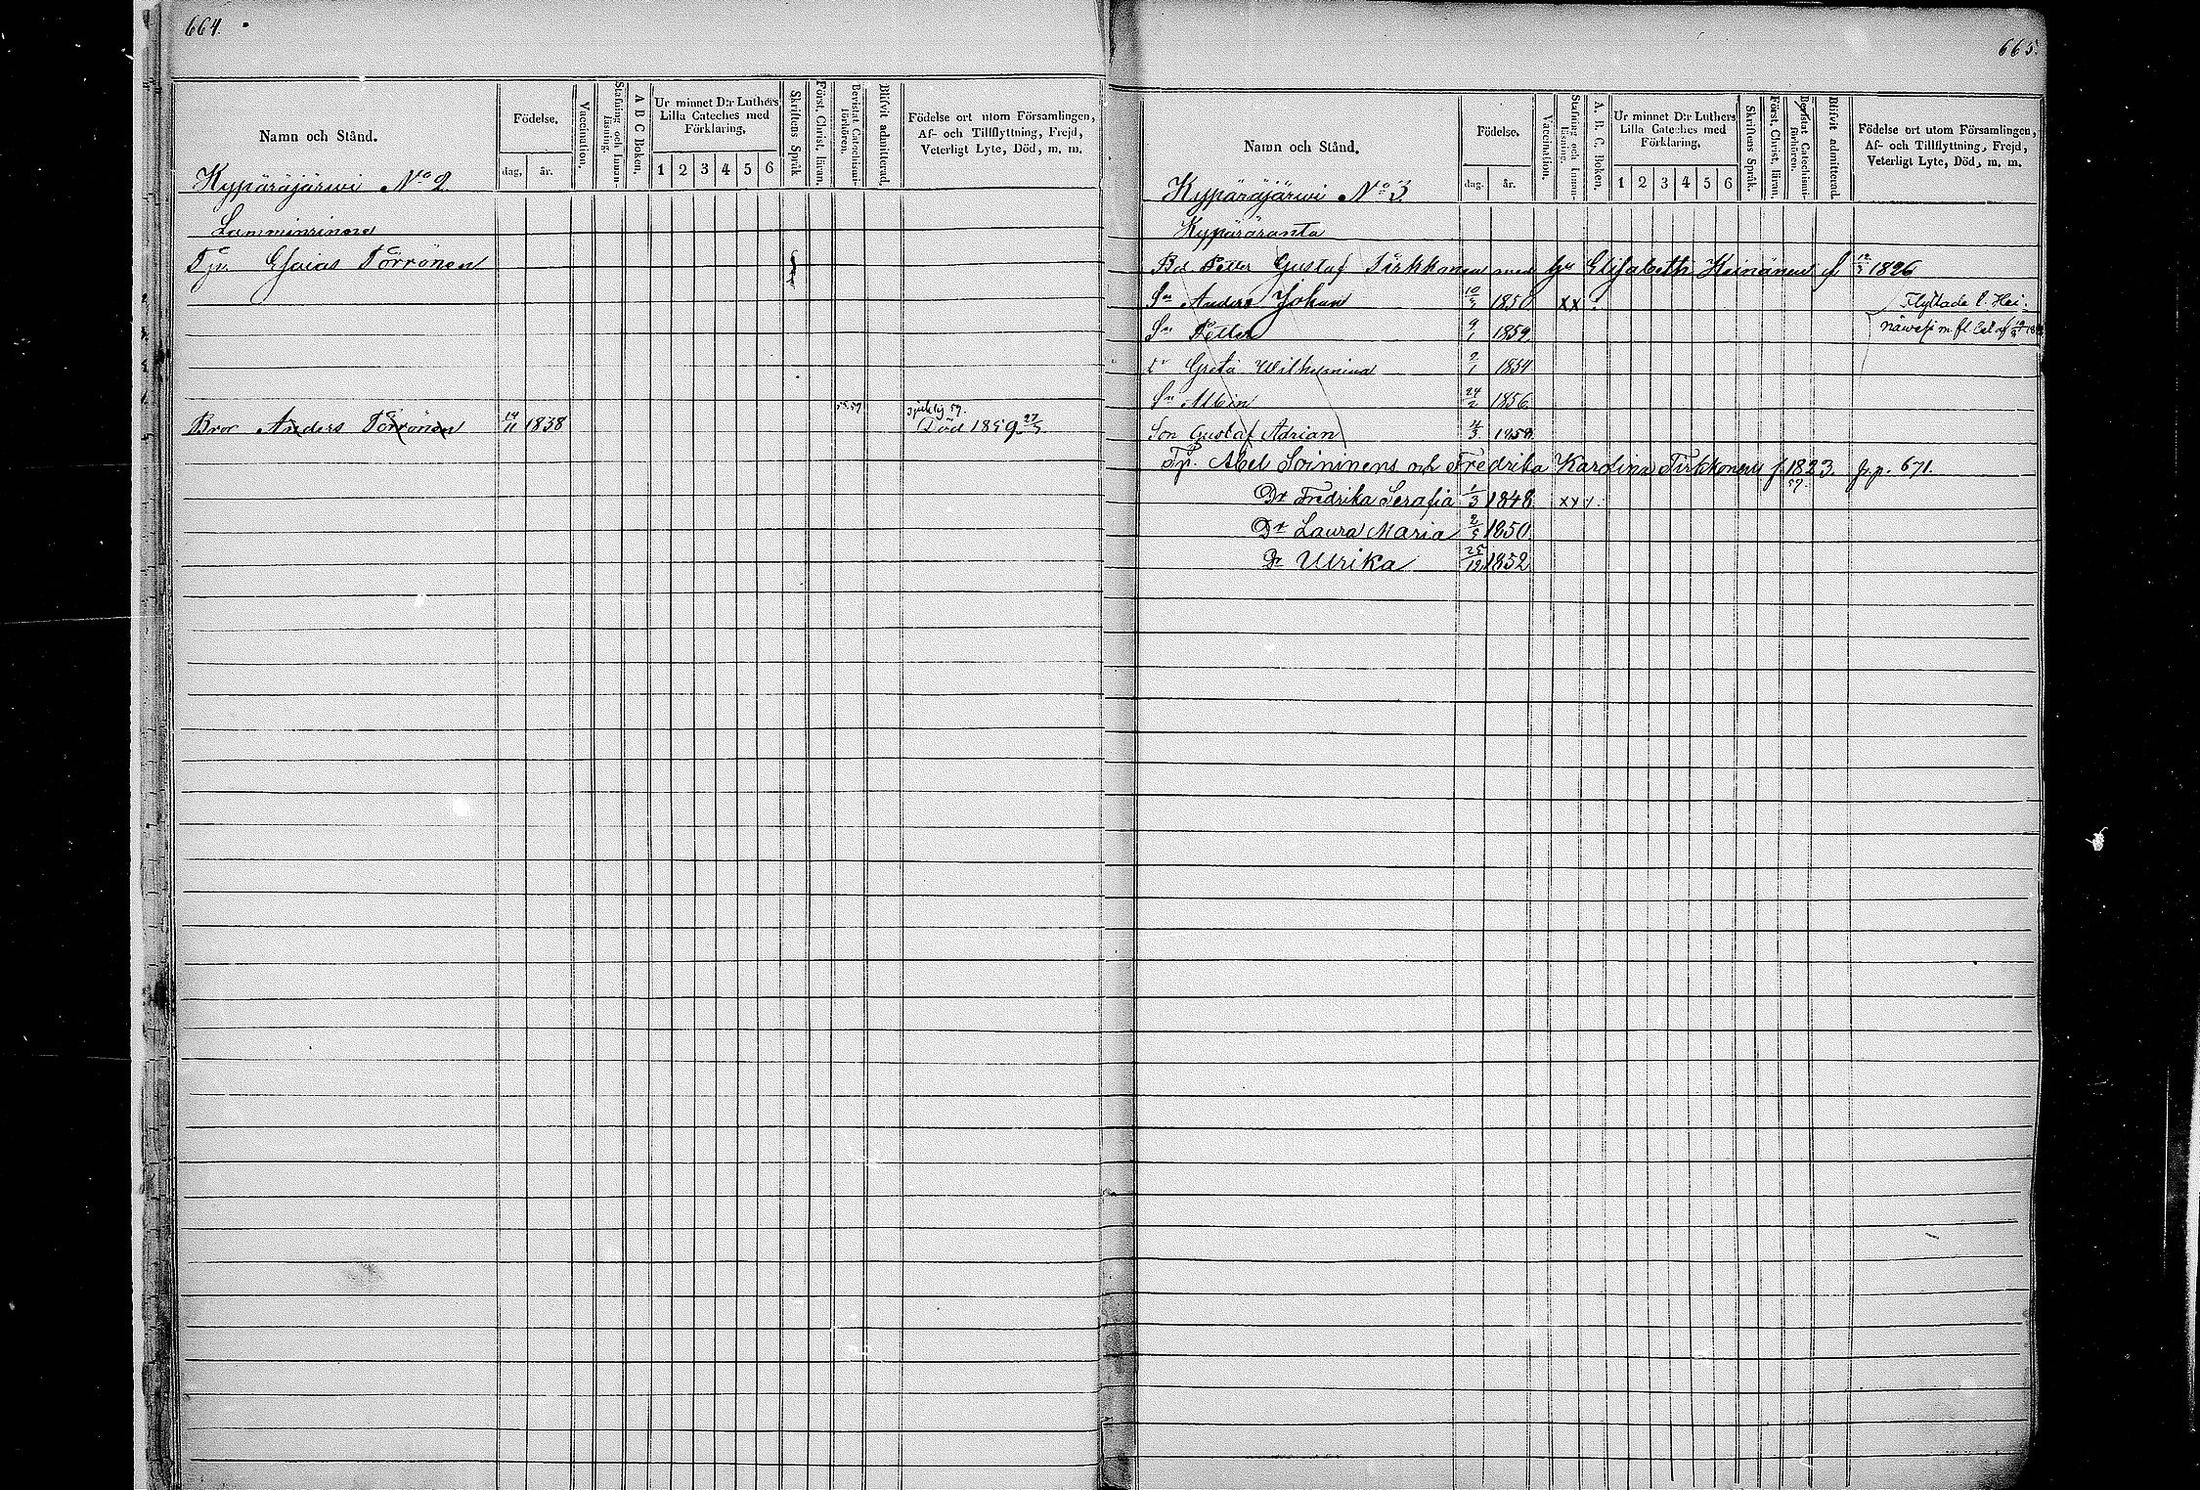 664.
Namn och Stånd.
Födelse.
dag, år.
Vaccination.
Stafning och Innanläsning.
A B C Boken.
Ur minnet D:r Luthers Lilla Cateches med Förklaring.
1 2 3 4 5 6
Skriftens Språk
Först. Christ. läran.
Bevistat Catechismiförhören.
Blifvit admitterad.
Födelse ort utom Församlingen, Af- och Tillflyttning, Frejd, Veterligt Lyte, Död, m. m.
Kypäräjärwi No 2
Lamminrinne
Tp. Esaias Törrönen
Bror Anders Törrönen 14/11 1838 58.59 sjuklig 59. Död 1859 27/5
665.
Namn och Stånd.
Födelse.
dag. år.
Vaccination.
Stafning och Innanläsning.
A. B. C. Boken.
Ur minnet D:r Luthers Lilla Cateches med Förklaring.
1 2 3 4 5 6
Skriftens Språk.
Först. Christ. läran.
Bevistat Catechismiförhören.
Blifvit admitterad.
Födelse ort utom Församlingen, Af- och Tillflyttning, Frejd, Veterligt Lyte, Död, m. m.
Kypäräjärwi No 3
Kypäräranta
Petter Gustaf Tirkkonen med hu Elisabeth Keinänen f 12/3 1826
Sn Anders Johan 10/5 1850 xx Flyttade t. Hei
Sn Petter 9/1 1852 näwesi m fl.
Dr Greta Wilhelmina 2/1 1854
Sn Albin 24/2 1856
Son Gustaf Adrian 4/3 1858
Tp. Abel Soininens och Fredrika Karolina Tirkkonens f 1823. fr. p. 671.
Dr Fredrika Serafia 1/3 1848 xxx
Dr Laura Maria 2/5 1850
Dr Ulrika 25/12 1852